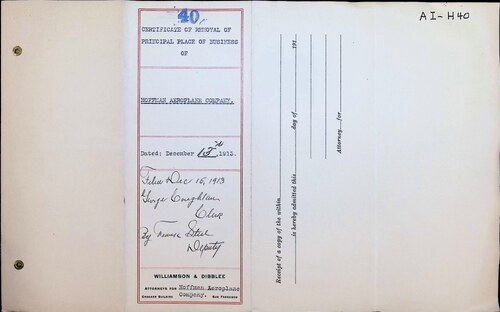 40
CERTIFICATE OF REMOVAL OF
PRINCIPAL PLACE OF BUSINESS
OF
HOFFMAN AEROPLANE COMPANY.
Dated: December 15th 1913.
Filed Dec 15, 1913
George Coughlan
Clerk
By
Deputy
WILLIAMSON & DIBBLEE
ATTORNEYS FOR Hoffman Aeroplane
Company.
SAN FRANCISCO
Receipt of a copy of the within
is hereby admitted this day of 191
Attorney for
AI-H40